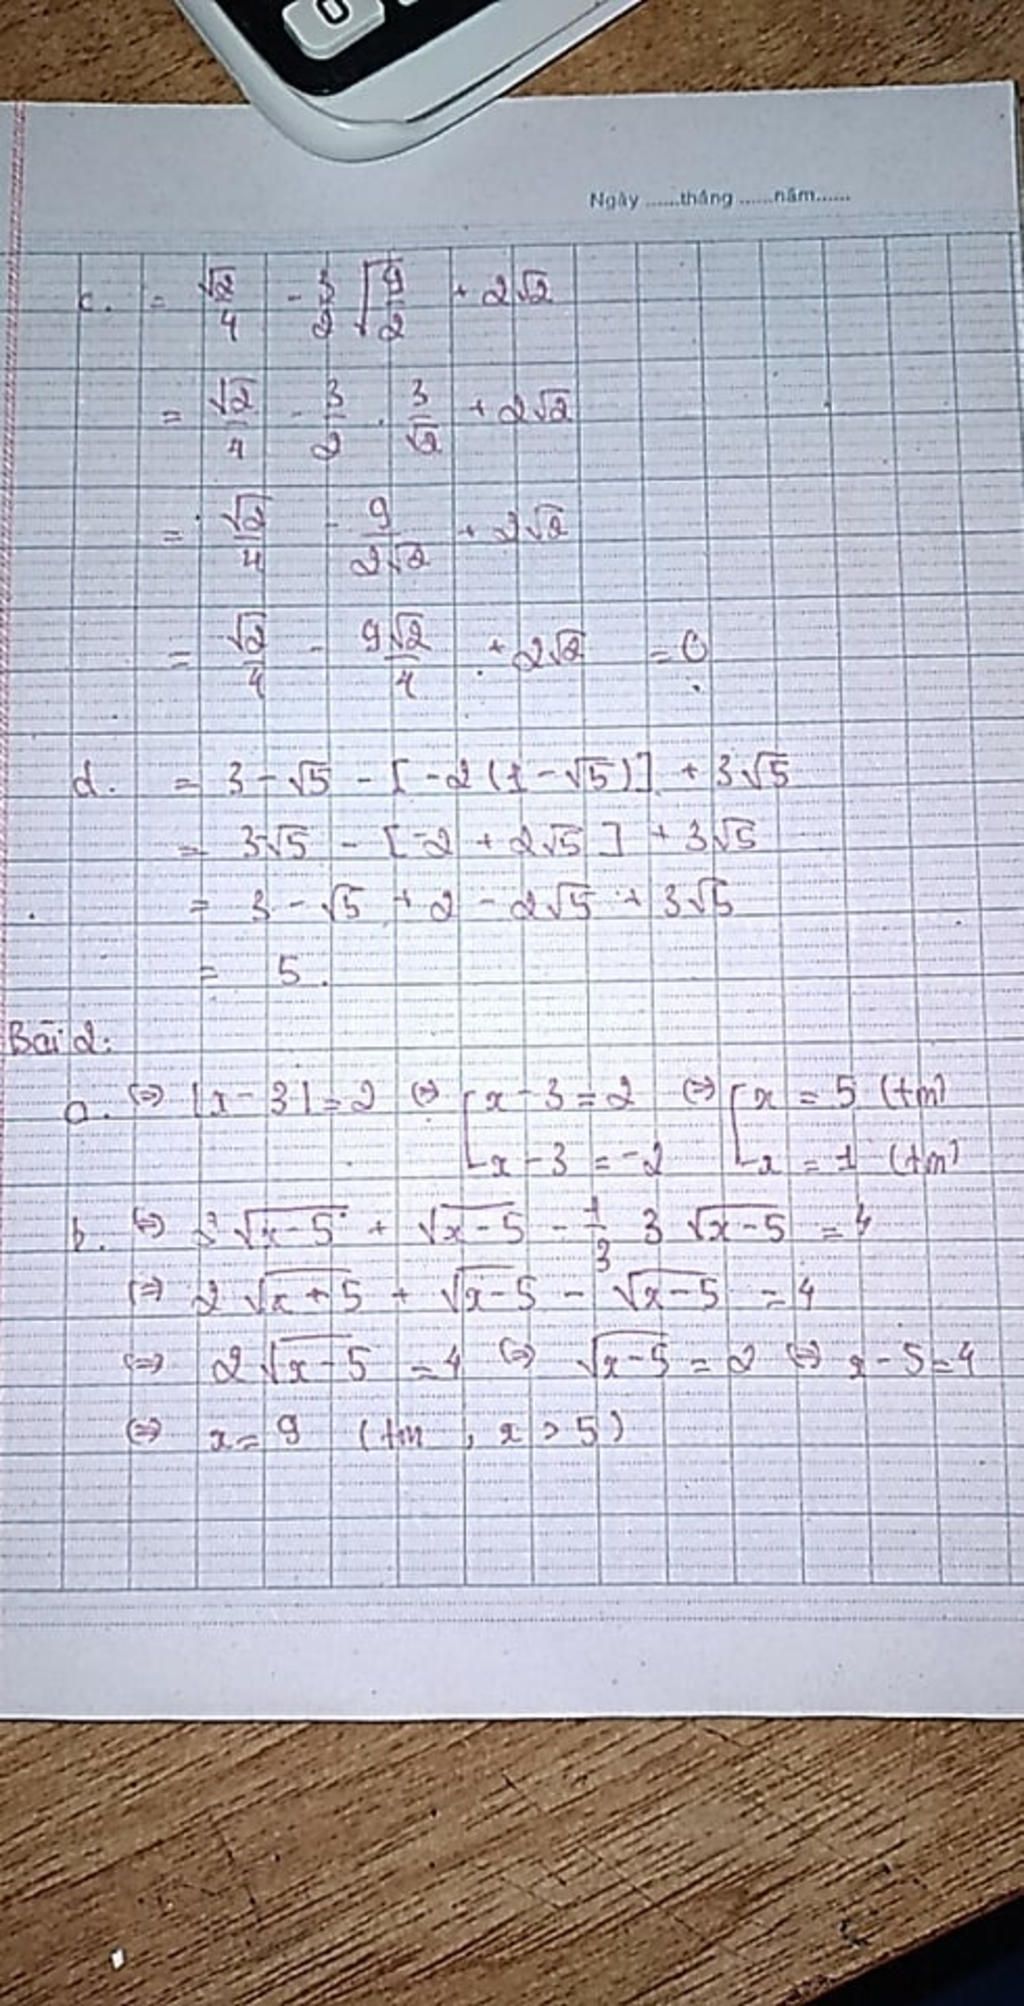 0
Ngày ......tháng ......năm......
c. = √2/4 - 3/2 √(9/2) + 2√2
= √2/4 - 3/2 . 3/√2 + 2√2
= √2/4 - 9/(2√2) + 2√2
= √2/4 - 9√2/4 + 2√2 = 0
d. = 3 - √5 - [-2(1 - √5)] + 3√5
= 3-√5 - [-2 + 2√5] + 3√5
= 3 - √5 + 2 - 2√5 + 3√5
= 5.
Bài 2:
a. (=) |x - 3| = 2 (=) [x - 3 = 2 (=) [x = 5 (tm)
x - 3 = -2 x = 1 (tm)
b. (=) 2√(x-5) + √(x-5) - 1/3 3 √(x-5) = 4
(=) 2√(x+5) + √(x-5) - √(x-5) = 4
(=) 2√(x-5) = 4 (=) √(x-5) = 2 (=) x - 5 = 4
(=) x = 9 (tm, x > 5)